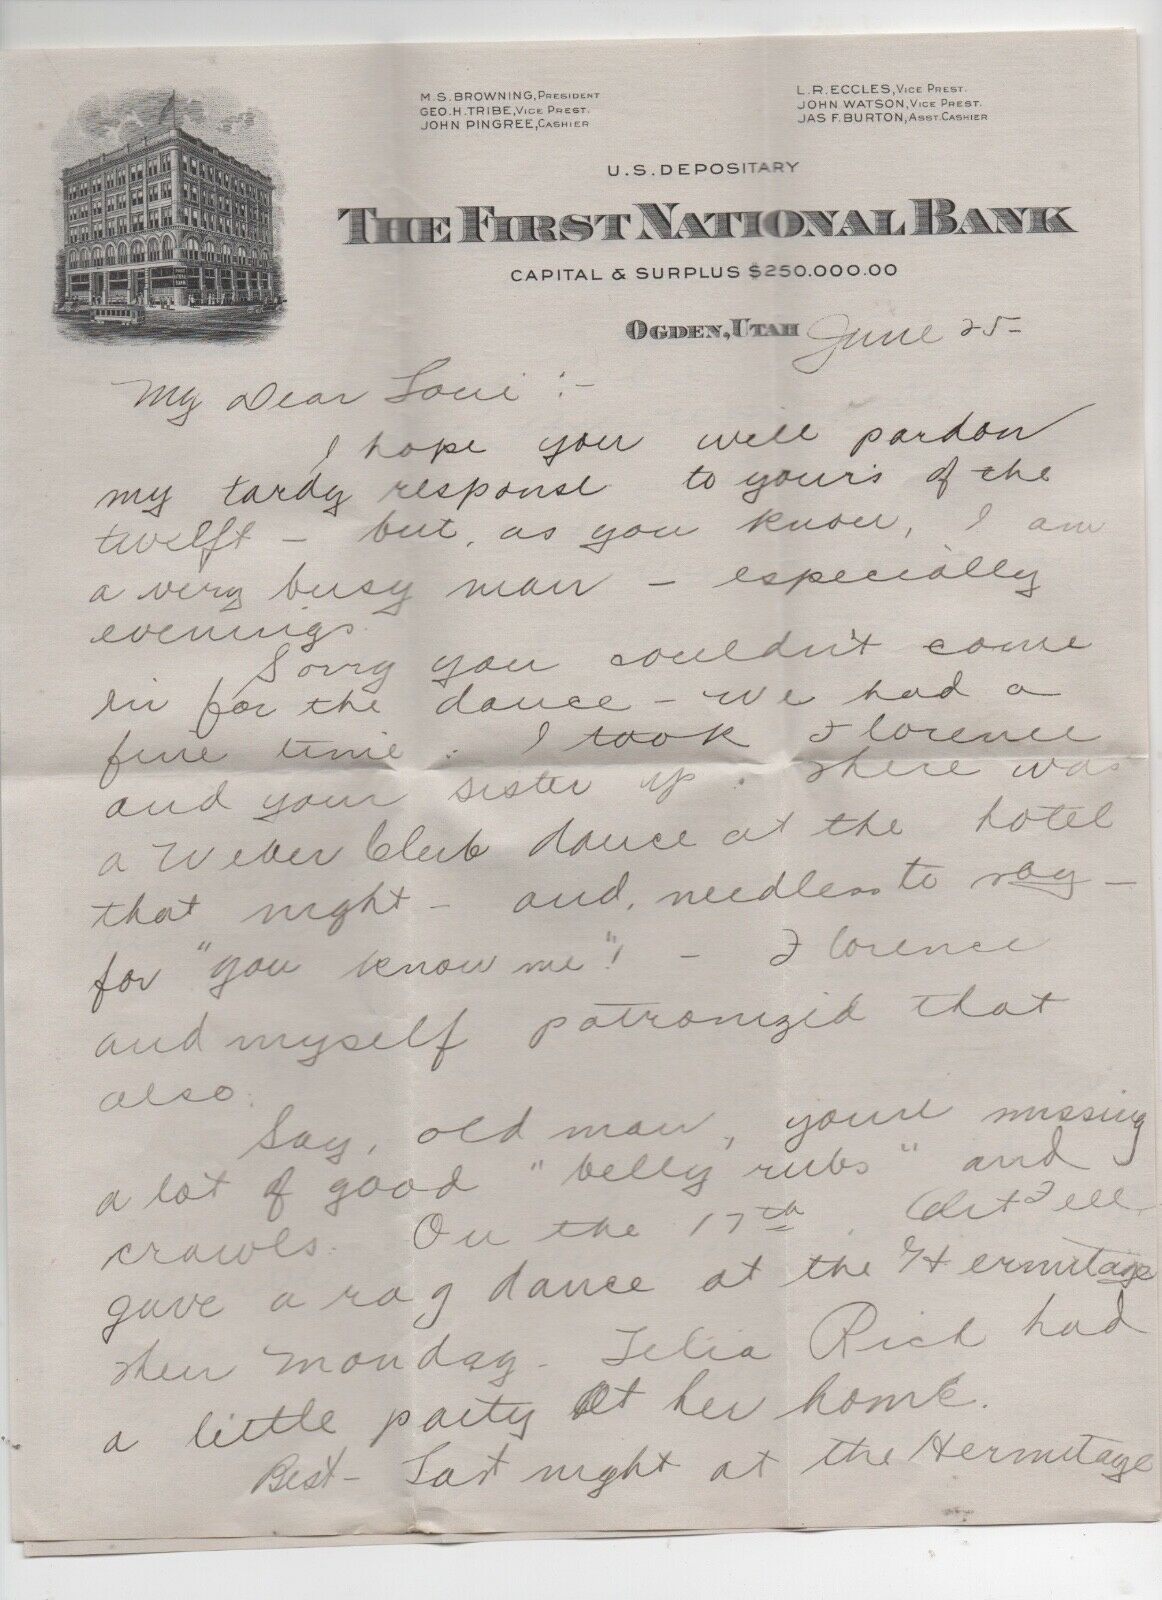 M. S. BROWNING, PRESIDENT
GEO. H. TRIBE, VICE PREST.
JOHN PINGREE, CASHIER
L. R. ECCLES, VICE PREST.
JOHN WATSON, VICE PREST.
JAS F. BURTON, ASST. CASHIER
U.S. DEPOSITARY
THE FIRST NATIONAL BANK
CAPITAL & SURPLUS $250.000.00
OGDEN, UTAH June 25-
My Dear Loui :-
I hope you will pardon
my tardy response to yours of the
twelft - but, as you know, I am
a very busy man - especially
evenings.
Sorry you couldn't come
in for the dance - We had a
fine time. I took Florence
and your sister up. There was
a Weber Club dance at the hotel
that night - and, needless to say -
for "you know me"! - Florence
and myself patronized that
also.
Say, old man, youre missing
a lot of good "belly rubs" and
crawls. On the 17th. Art
gave a rag dance at the Hermitage
then Monday - Rich had
a little party At her home.
Best - Last night at the Hermitage